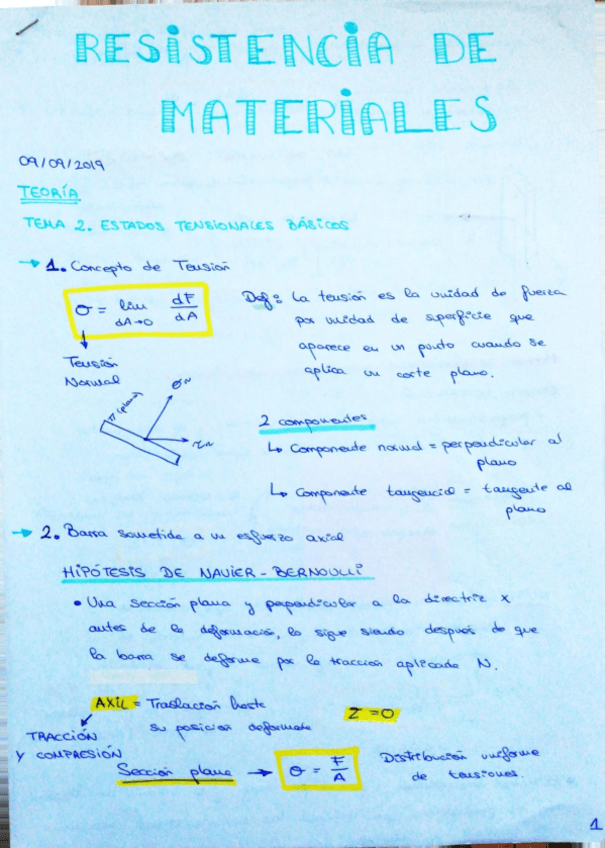 RESISTENCIA DE
MATERIALES
09/09/2019
TEORÍA
TEMA 2. ESTADOS TENSIONALES BÁSICOS
→ 1. Concepto de Tensión
σ = lim dF/dA
dA→0
Tensión
Normal
Def: La tensión es la unidad de fuerza
por unidad de superficie que
aparece en un punto cuando se
aplica un corte plano.
π (plano)
2 componentes
↳ Componente normal = perpendicular al
plano
↳ Componente tangencial = tangente al
plano
→ 2. Barra sometida a un esfuerzo axial
HIPÓTESIS DE NAVIER-BERNOULLI
• Una sección plana y perpendicular a la directriz x
antes de la deformación, lo sigue siendo después de que
la barra se deforme por la tracción aplicada N.
AXIL = Traslación hasta
su posición deformada
Z = 0
TRACCIÓN
Y COMPRESIÓN
Sección plana → σ = F/A
Distribución uniforme
de tensiones.
1